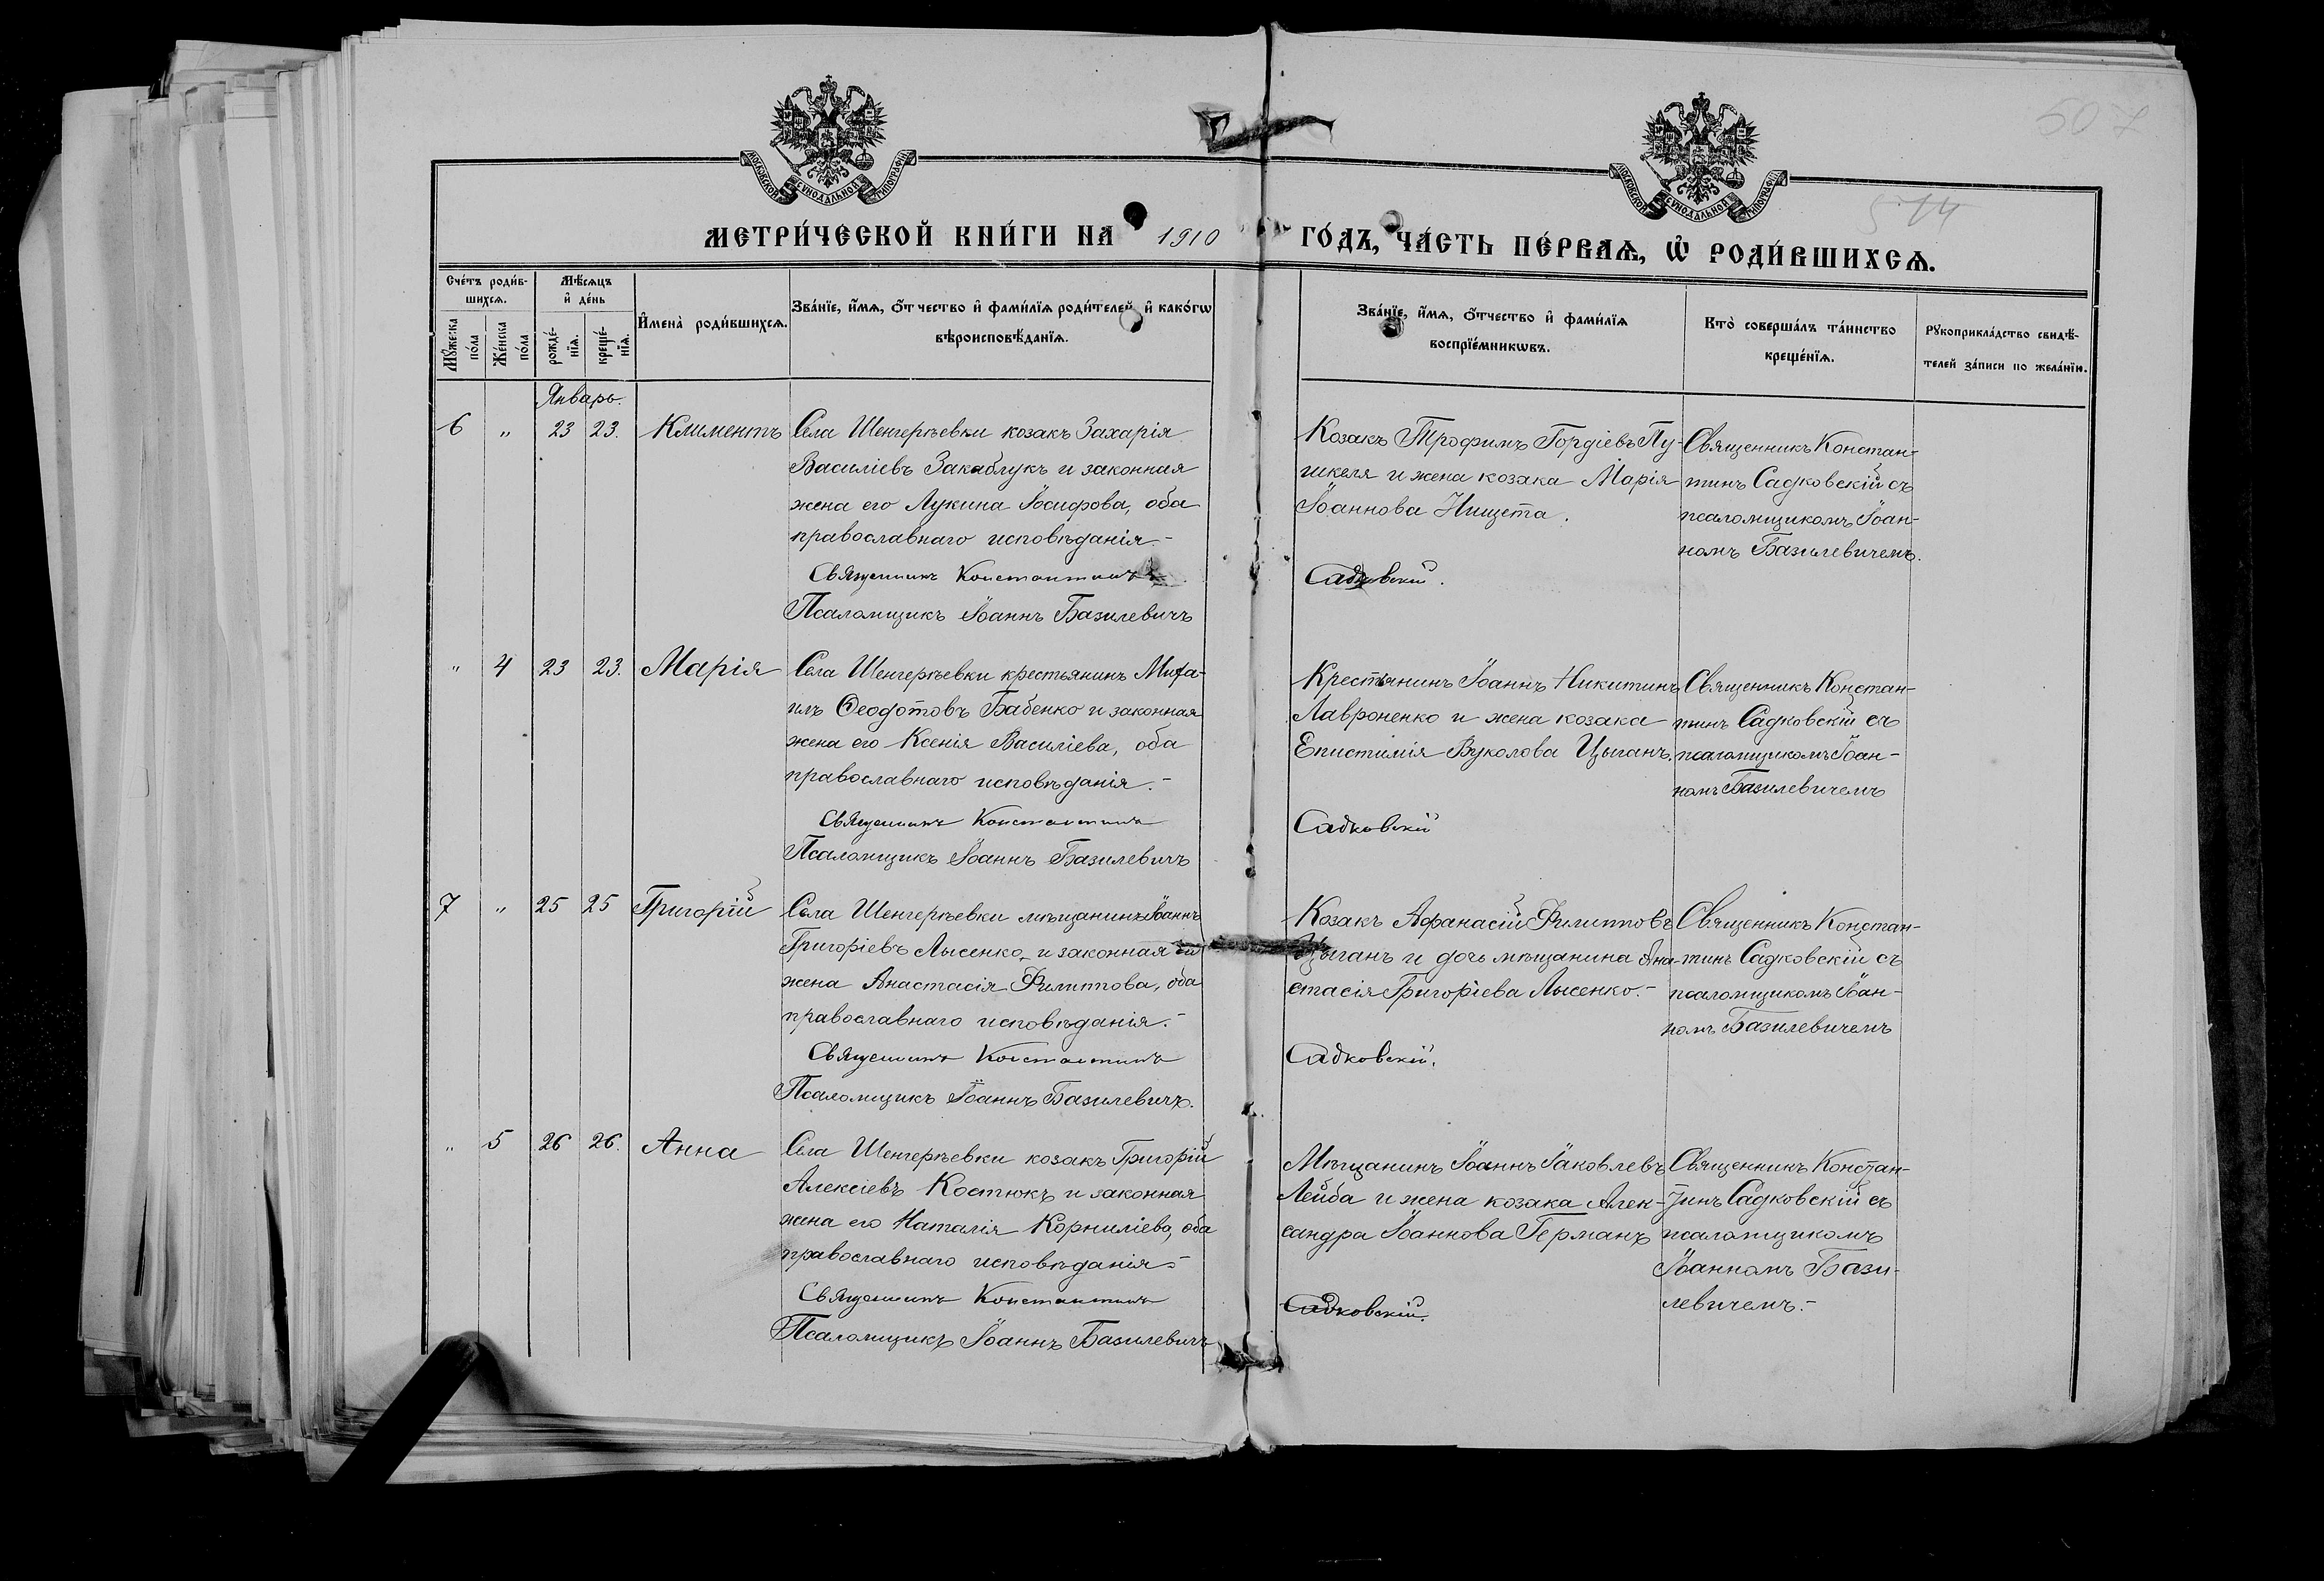 507
514
МОСКОВСКОЙ СѴНОДАЛЬНОЙ ТИПОГРАФІИ
МОСКОВСКОЙ СѴНОДАЛЬНОЙ ТИПОГРАФІИ
МЕТРИ́ЧЕСКОЙ КНИ́ГИ НА 1910 ГО́ДЪ, ЧА́СТЬ ПЕ́РВАѦ, Ѡ҆ РОДИ́ВШИХСѦ.
Сче́тъ роди́в-
шихсѧ.
Мꙋ́жеска по́ла
Же́нска по́ла
Мѣ́сѧцъ
и҆ де́нь
рожде́-
нїѧ.
креще́-
нїѧ.
И҆мена̀ роди́вшихсѧ.
Зва́нїе, и҆́мѧ, ѻ҆́тчество и҆ фами́лїѧ роди́телей, и҆ како́гѡ
вѣроисповѣ́данїѧ.
Зва́нїе, и҆́мѧ, ѻ҆́тчество и҆ фами́лїѧ
воспрїе́мникѡвъ.
Кто̀ соверша́лъ та́инство
креще́нїѧ.
Рꙋкоприкла́дство свидѣ́-
телей за́писи по жела́нїи.
Январь.
6 " 23 23. Климентъ
Села Шенгерѣевки козакъ Захарія
Василіевъ Закаблукъ и законная
жена его Лукина Іосифова, оба
православнаго исповѣданія.-
Священникъ Константинъ
Псаломщикъ Іоаннъ Базилевичъ
Козакъ Трофимъ Гордіевъ Пу-
шкеля и жена козака Марія
Іоаннова Нищета.
Садковскій.
Священникъ Констан-
тинъ Садковскій съ
псаломщикомъ Іоан-
номъ Базилевичемъ.
" 4 23 23. Марія
Села Шенгерѣевки крестьянинъ Миха-
илъ Ѳеодотовъ Бабенко и законная
жена его Ксенія Василіева, оба
православнаго исповѣданія.-
Священникъ Константинъ
Псаломщикъ Іоаннъ Базилевичъ
Крестьянинъ Іоаннъ Никитинъ
Лавроненко и жена козака
Епистимія Вуколова Цыганъ.
Садковскій
Священникъ Констан-
тинъ Садковскій съ
псаломщикомъ Іоан-
номъ Базилевичемъ
7 " 25 25 Григорій
Села Шенгерѣевки мѣщанинъ Іоаннъ
Григоріевъ Лысенко, и законная
жена Анастасія Филиппова, оба
православнаго исповѣданія.-
Священникъ Константинъ
Псаломщикъ Іоаннъ Базилевичъ.
Козакъ Афанасій Филипповъ
Цыганъ и дочь мѣщанина Ана-
стасія Григоріева Лысенко.-
Садковскій.
Священникъ Констан-
тинъ Садковскій съ
псаломщикомъ Іоан-
номъ Базилевичемъ
" 5 26 26. Анна
Села Шенгерѣевки козакъ Григорій
Алексіевъ Костюкъ и законная
жена его Наталія Корниліева, оба
православнаго исповѣданія.-
Священникъ Константинъ
Псаломщикъ Іоаннъ Базилевичъ
Мѣщанинъ Іоаннъ Іаковлевъ
Лейба и жена козака Алек-
сандра Іоаннова Германъ
Садковскій.
Священникъ Констан-
тинъ Садковскій съ
псаломщикомъ
Іоанномъ Бази-
левичемъ.-